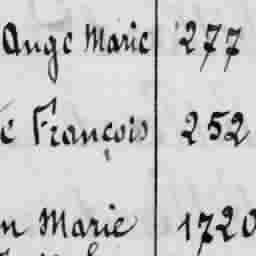 Ange Marie 277
é François 252
n Marie 1720